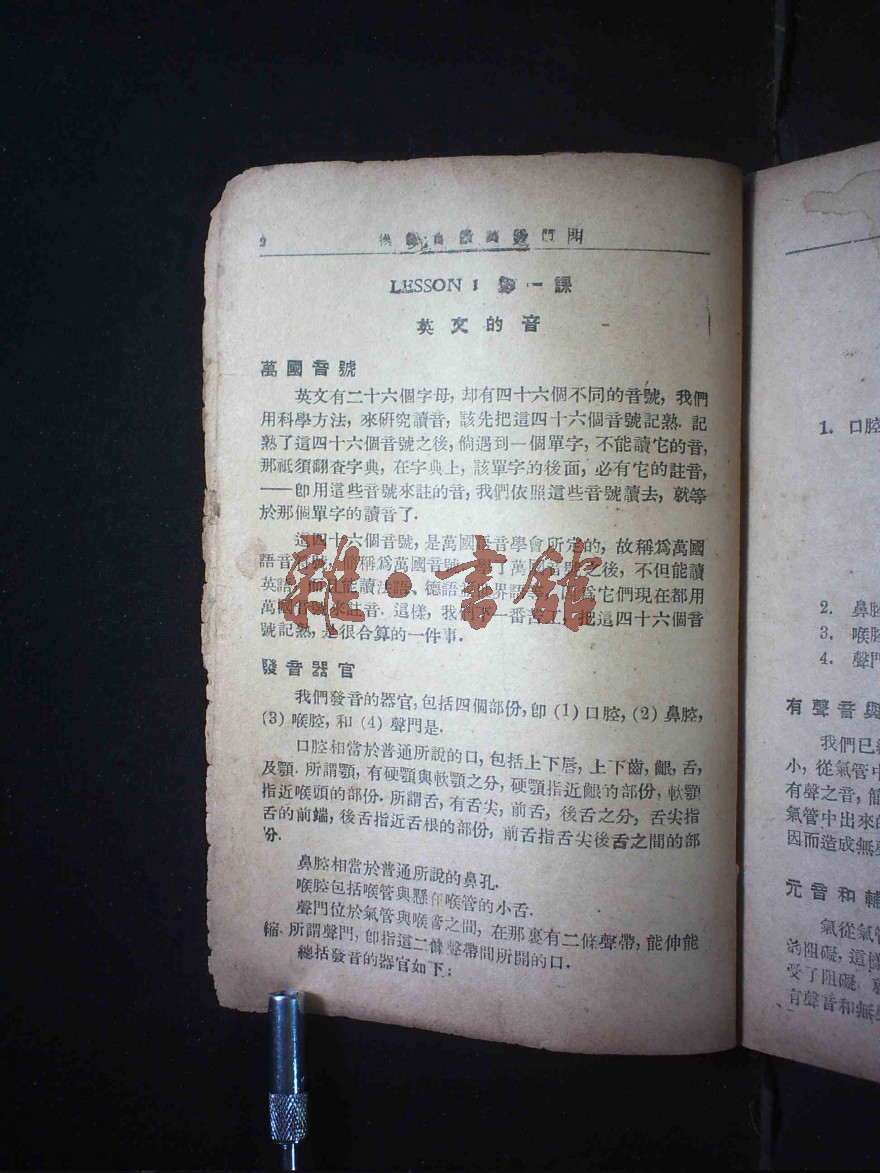 2
LESSON 1 第一課
英文的音
萬國音號
英文有二十六個字母, 却有四十六個不同的音號, 我們
用科學方法, 來研究讀音, 該先把這四十六個音號記熟. 記
熟了這四十六個音號之後, 倘遇到一個單字, 不能讀它的音,
那祇須翻查字典, 在字典上, 該單字的後面, 必有它的註音,
——卽用這些音號來註的音, 我們依照這些音號讀去, 就等
於那個單字的讀音了.
這四十六個音號, 是萬國語音學會所定的, 故稱爲萬國
語音符號, 稱爲萬國音號. 學了萬國音號之後, 不但能讀
英語, 而且能讀法語、德語 世界語等, 因爲它們現在都用
萬國音號來註音. 這樣, 我們 一番苦工, 把這四十六個音
號記熟, 是很合算的一件事.
發音器官
我們發音的器官, 包括四個部份, 卽 (1) 口腔, (2) 鼻腔,
(3) 喉腔, 和 (4) 聲門是.
口腔相當於普通所說的口, 包括上下唇, 上下齒, 齦, 舌,
及顎. 所謂顎, 有硬顎與軟顎之分, 硬顎指近齦的部份, 軟顎
指近喉頭的部份. 所謂舌, 有舌尖, 前舌, 後舌之分, 舌尖指
舌的前端, 後舌指近舌根的部份, 前舌指舌尖後舌之間的部
份.
鼻腔相當於普通所說的鼻孔.
喉腔包括喉管與懸在喉管的小舌.
聲門位於氣管與喉管之間, 在那裏有二條聲帶, 能伸能
縮. 所謂聲門, 卽指這二條聲帶間所開的口.
總括發音的器官如下:
雜·書館
1. 口腔
2. 鼻腔
3. 喉腔
4. 聲門
有聲音與
我們已經
小, 從氣管中
有聲之音, 簡
氣管中出來的
因而造成無聲
元音和輔
氣從氣管
的阻礙, 這
受了阻礙,
有聲音和無聲